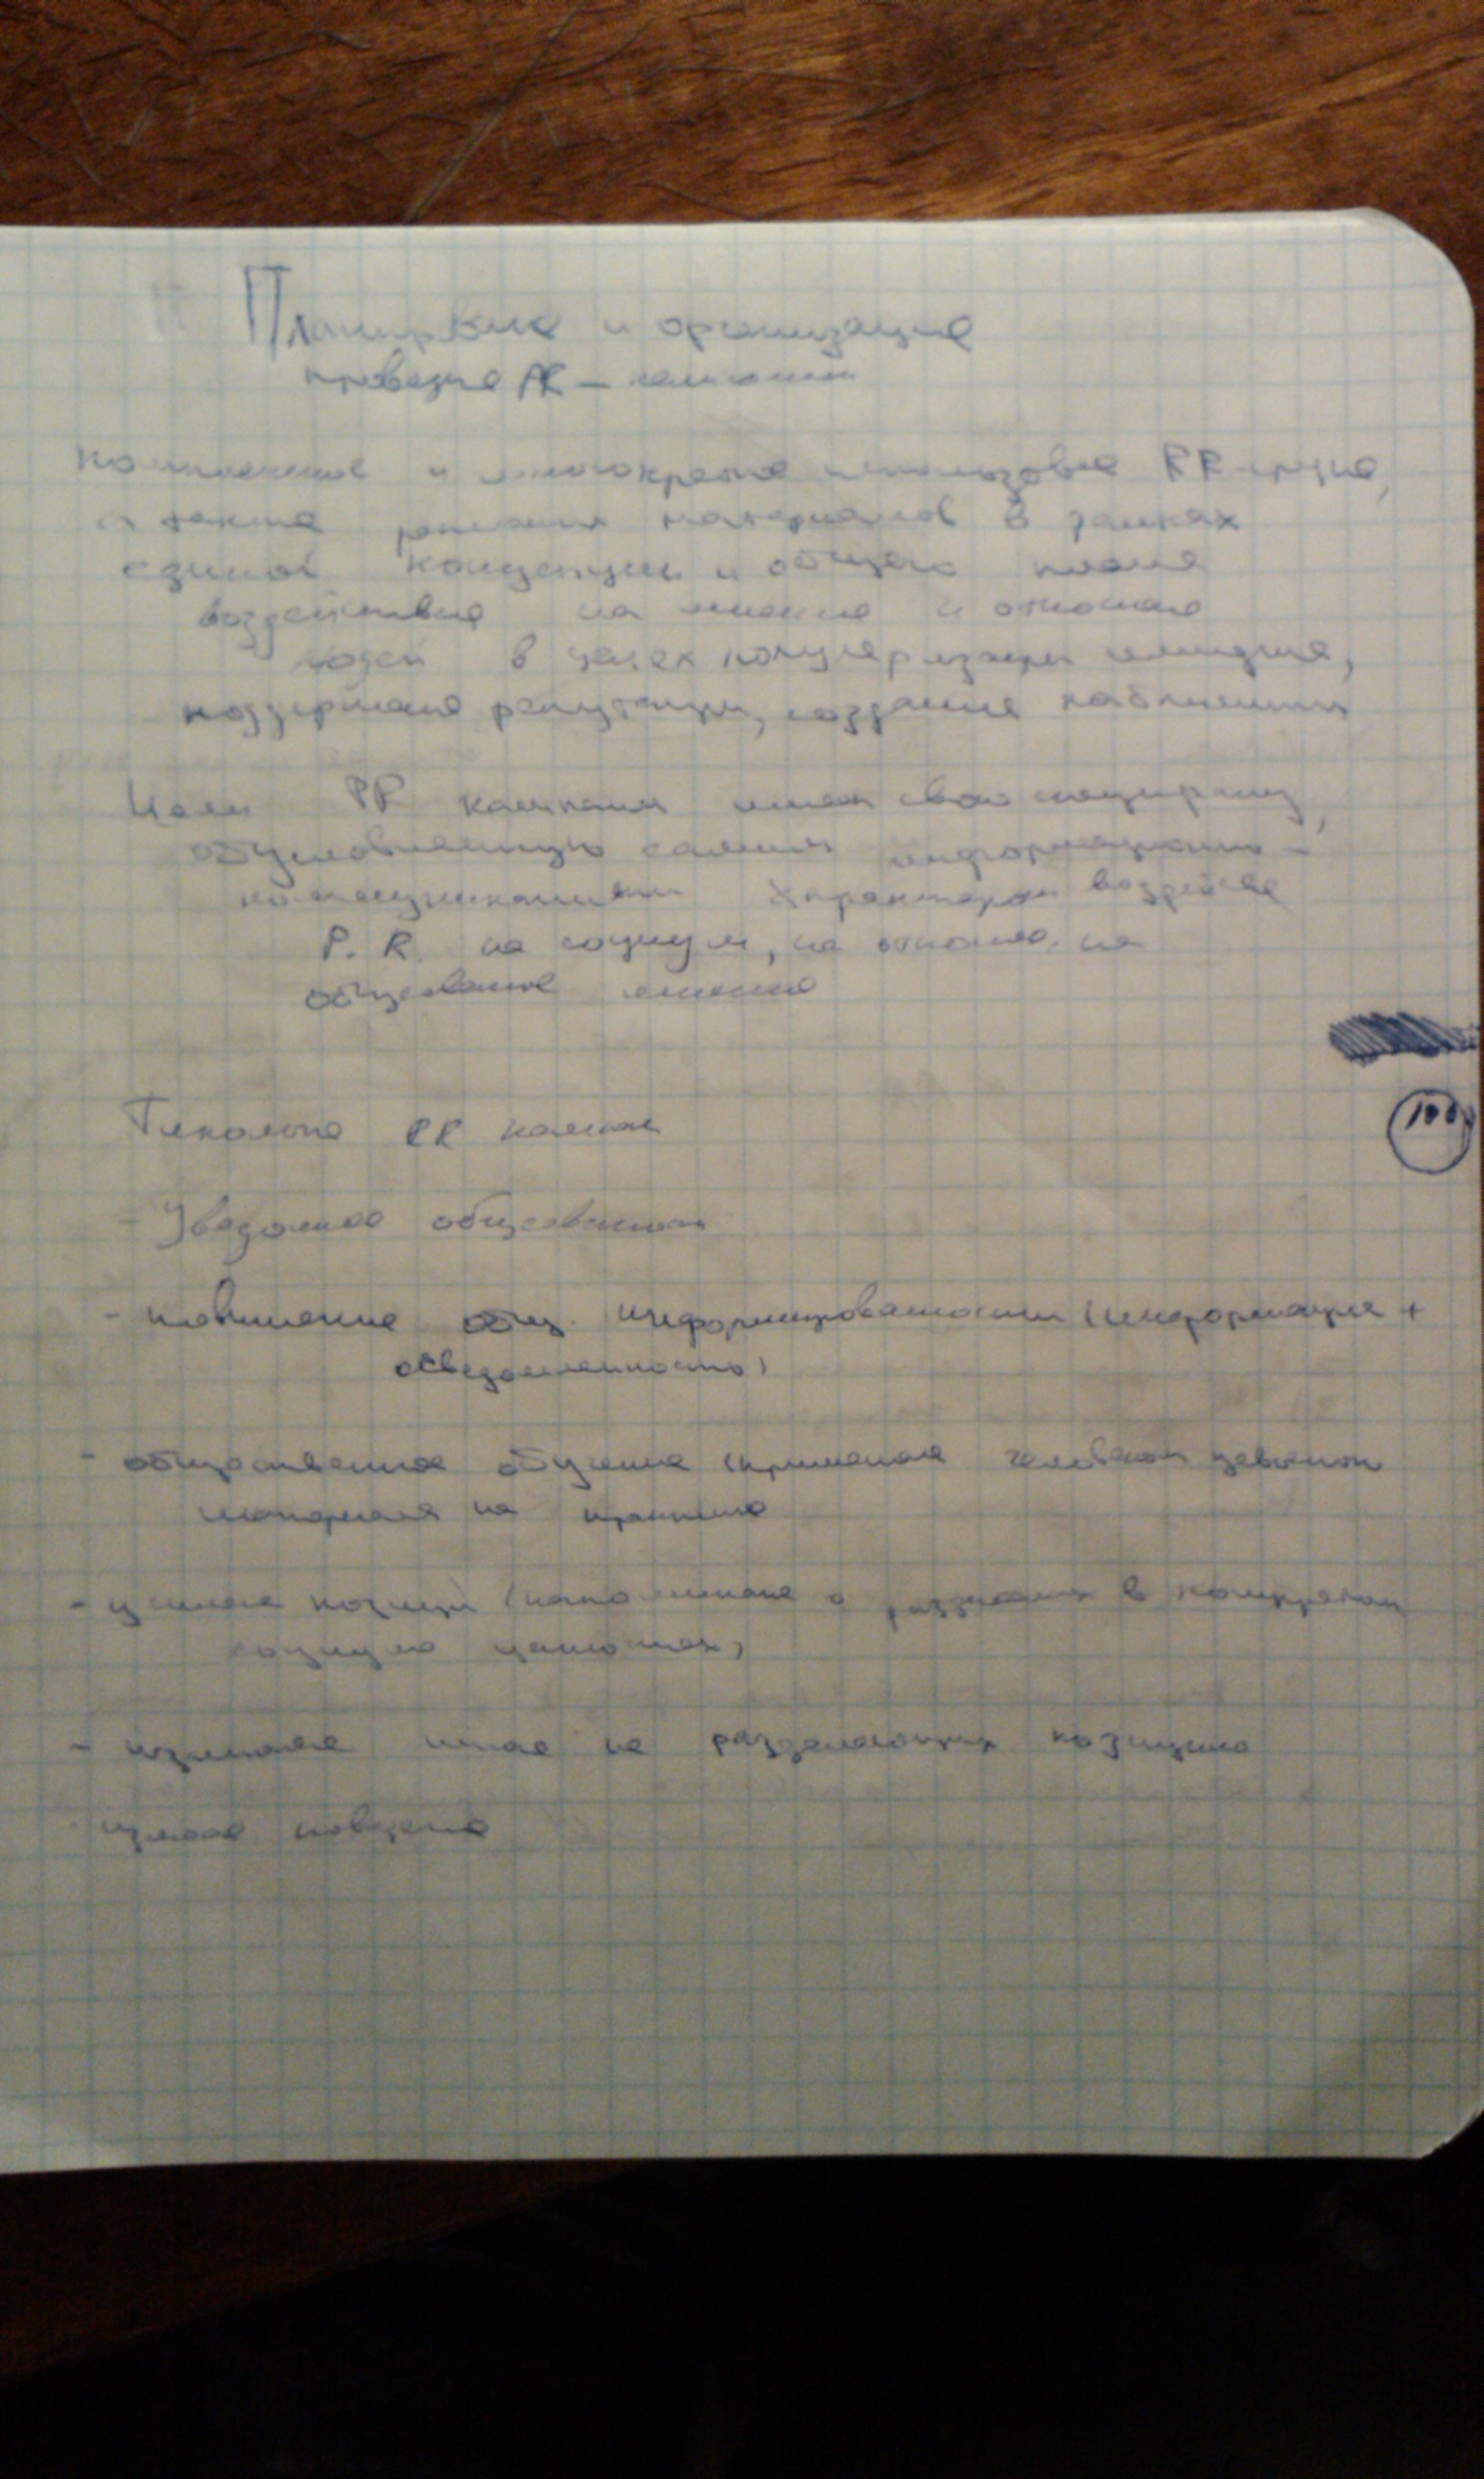 Планирвние и организация
проведие PR – кампаний
комплексное и многократное использове PR-средв,
а также рекламн материалов в рамках
единой концепции и общего плана
воздействие на мнение и отношене
людей в целях популяризации имиджа,
поддержане репутации, создание паблисити
Цели PR кампани имеют свою специфику,
обусловленную самим информационно-
коммуникативн характером воздейсве
P. R. на социум, на отношен. на
общесвеное мнение
PR кампан
- Уведомлее общесвенност
- повышение общ. информированности (информация +
осведомленность)
- общественное обучение (применене человеком
материала на практике
- усилене позиции (напоминане о в конкретном
социуме ценностях)
- изменене не разделяющих позицию
- поведене
100